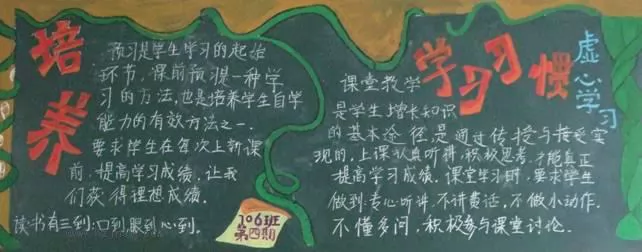 培养
预习是学生学习的起始
环节,课前预习是一种学
习的方法,也是培养学生自学
能力的有效方法之一.
要求学生在每次上新课
前,提高学习成绩,让我
们获得理想成绩.
读书有三到:口到,眼到,心到.
106班
第四期
学习习惯
虚心学习
课堂教学
是学生增长知识
的基本途径,是通过传授与接受实
现的,上课认真听讲,积极思考,才能真正
提高学习成绩.课堂学习时,要求学生
做到:专心听讲,不讲费话,不做小动作.
不懂多问,积极参与课堂讨论.